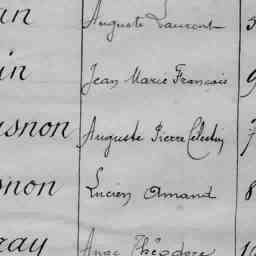 an Auguste Laurent 5
in Jean Marie Francois 9
snon Auguste Pierre Célestin 7
snon Lucien Amand 8
ray Ange Théodore 10